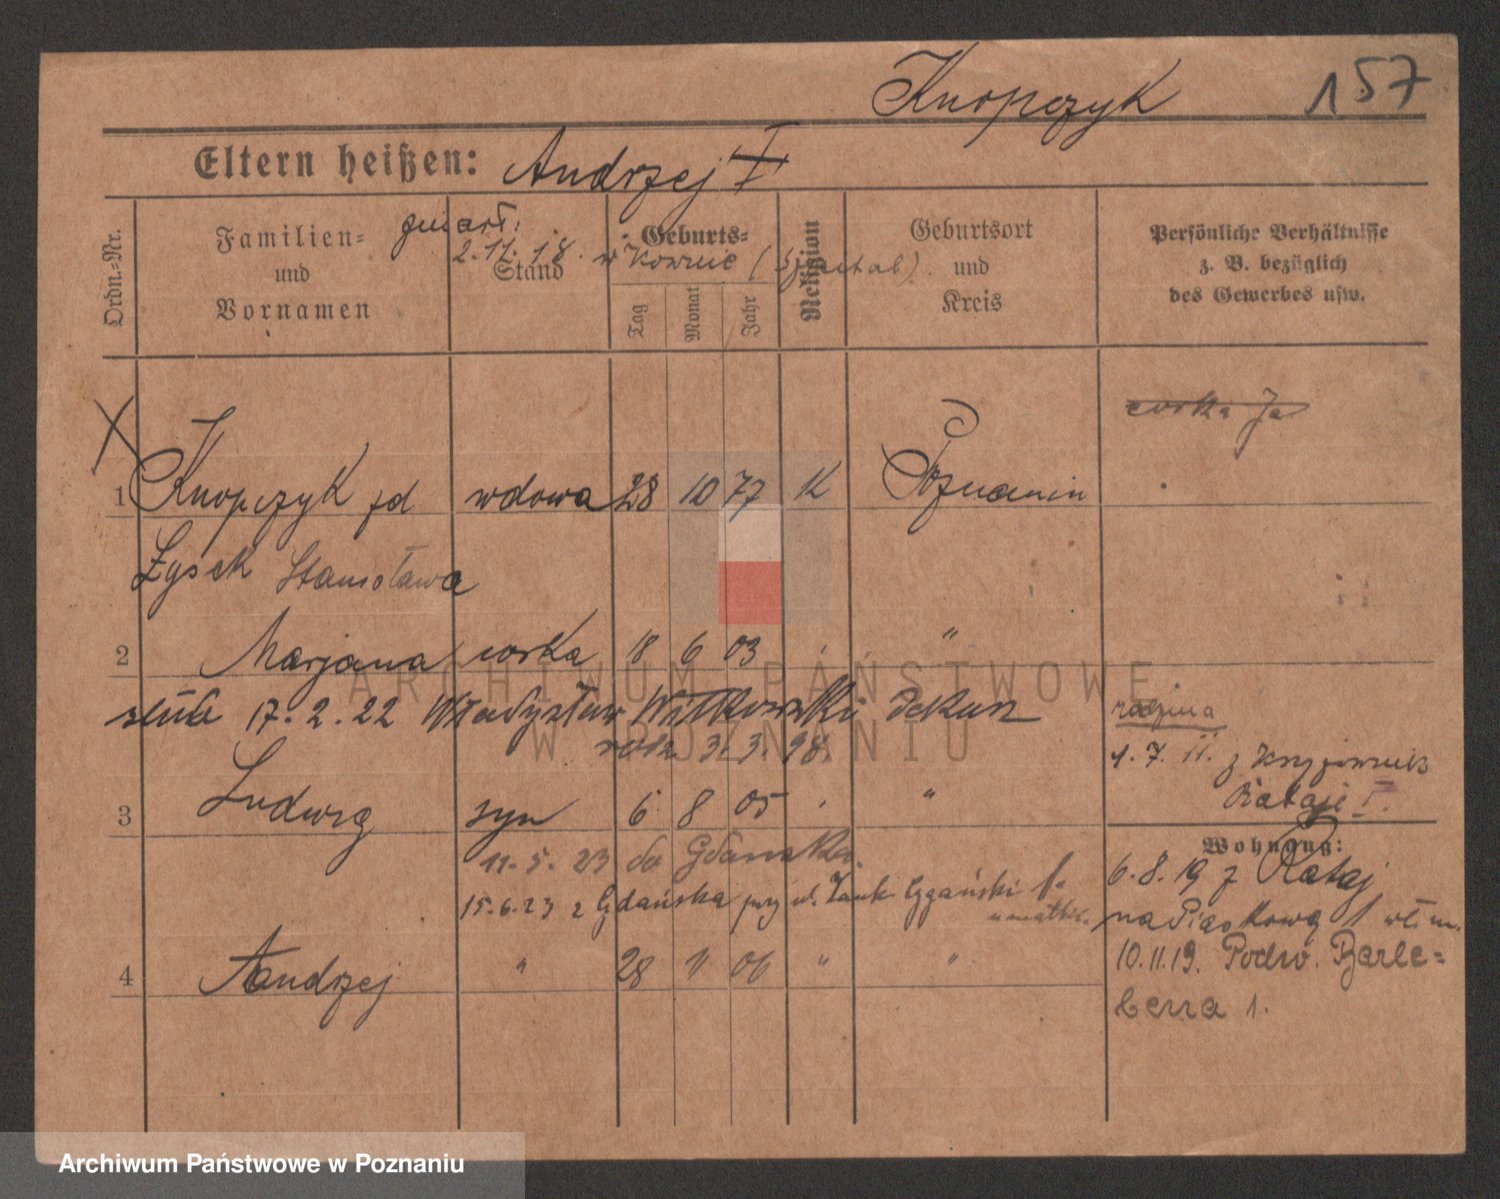 Knopczyk 157
Eltern heißen: Andrzej I
Ordn.-Nr.
Familien-
und
Vornamen
zmarł:
2.11.18. w Kownie (Szpital)
Stand
Geburts-
Tag
Monat
Jahr
Religion
Geburtsort
und
Kreis
Persönliche Verhältnisse
z. B. bezüglich
des Gewerbes usw.
corka Ja
1 Knopczyk wdowa 28 10 77 K Poznanin
Łysek Stanisława
2 Marjana corka 18 6 03 "
ślub 17.2.22 Władysław Witkowski Dekarz
rodz. 3.3.98.
rodzina
1.7.11. z
Rataje I.
3 Ludwig syn 6 8 05 "
11.5.23 do Gdańska.
15.6.23 z Gdańska przy ul.
u matki.
Wohnung:
6.8.19 z Rataj
na Piaskową 1
10.11.19. Podw. Berle=
berra 1.
4 Andrzej " 28 11 06 " "
ARCHIWUM PAŃSTWOWE
W POZNANIU
Archiwum Państwowe w Poznaniu